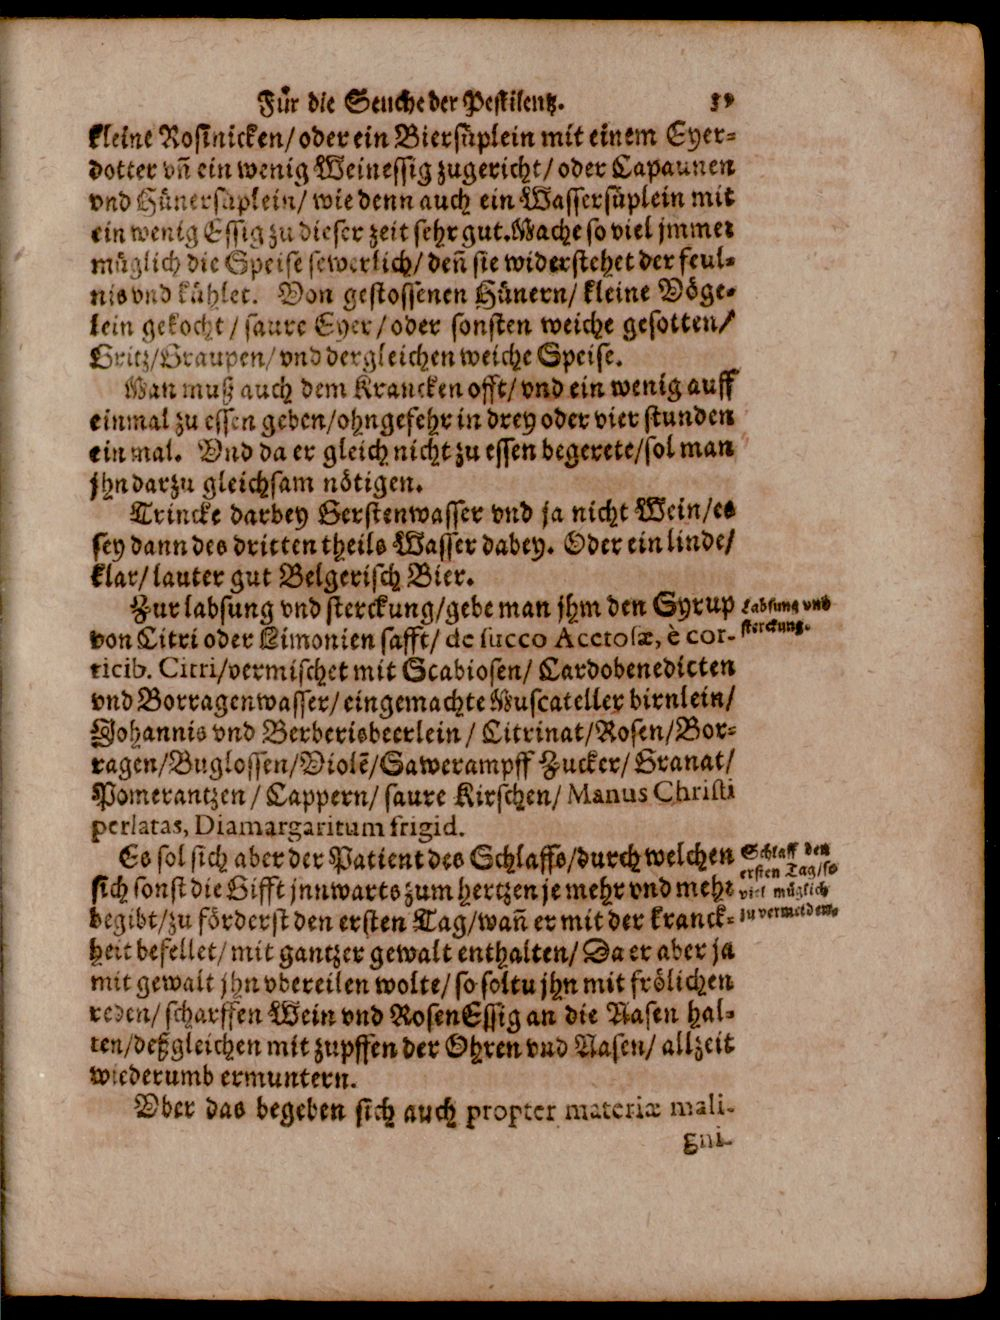 Für die Seuche der Pestilentz.
kleine Rosinicken/ oder ein Biersüplein mit einem Eyer-
dotter vñ ein wenig Weinessig zugericht/ oder Capaunen
vnd Hünersüplein/ wie denn auch ein Wassersüplein mit
ein wenig Essig zu dieser zeit sehr gut. Mache so viel jmmer
müglich die Speise sewerlich/ deñ sie widerstehet der feul-
nis vnd kühlet. Von gestossenen Hünern/ kleine Vöge-
lein gekocht / saure Eyer / oder sonsten weiche gesotten/
Gritz/ Graupen/ vnd dergleichen weiche Speise.
Man muß auch dem Krancken offt/ vnd ein wenig auff
einmal zu essen geben/ ohngefehr in drey oder vier stunden
ein mal. Vnd da er gleich nicht zu essen begerete/ sol man
jhn darzu gleichsam nötigen.
Trincke darbey Gerstenwasser vnd ja nicht Wein/ es
sey dann des dritten theils Wasser dabey. Oder ein linde/
klar/ lauter gut Belgerisch Bier.
Zur labsung vnd sterckung/ gebe man jhm den Syrup
Labsung vnd
sterckung.
von Citri oder Limonien safft/ de succo Acetosæ, è cor-
ticib. Citri/ vermischet mit Scabiosen/ Cardobenedicten
vnd Borragenwasser/ eingemachte Muscateller birnlein/
Johannis vnd Berberisbeerlein / Citrinat/ Rosen/ Bor-
ragen/ Buglossen/ Violẽ/ Sawerampff Zucker/ Granat/
Pomerantzen / Cappern/ saure Kirschen/ Manus Christi
perlatas, Diamargaritum frigid.
Es sol sich aber der Patient des Schlaffs/ durch welchen
Schlaff den
ersten Tag/ so
viel müglich
zu vermeiden.
sich sonst die Gifft jnnwarts zum hertzen je mehr vnd mehr
begibt/ zu förderst den ersten Tag/ wañ er mit der kranck-
heit befellet/ mit gantzer gewalt enthalten/ Da er aber ja
mit gewalt jhn vbereilen wolte/ so soltu jhn mit frölichen
reden/ scharffen Wein vnd RosenEssig an die Nasen hal-
ten/ deßgleichen mit zupffen der Ohren vnd Nasen/ allzeit
wiederumb ermuntern.
Vber das begeben sich auch propter materiæ mali-
gni-